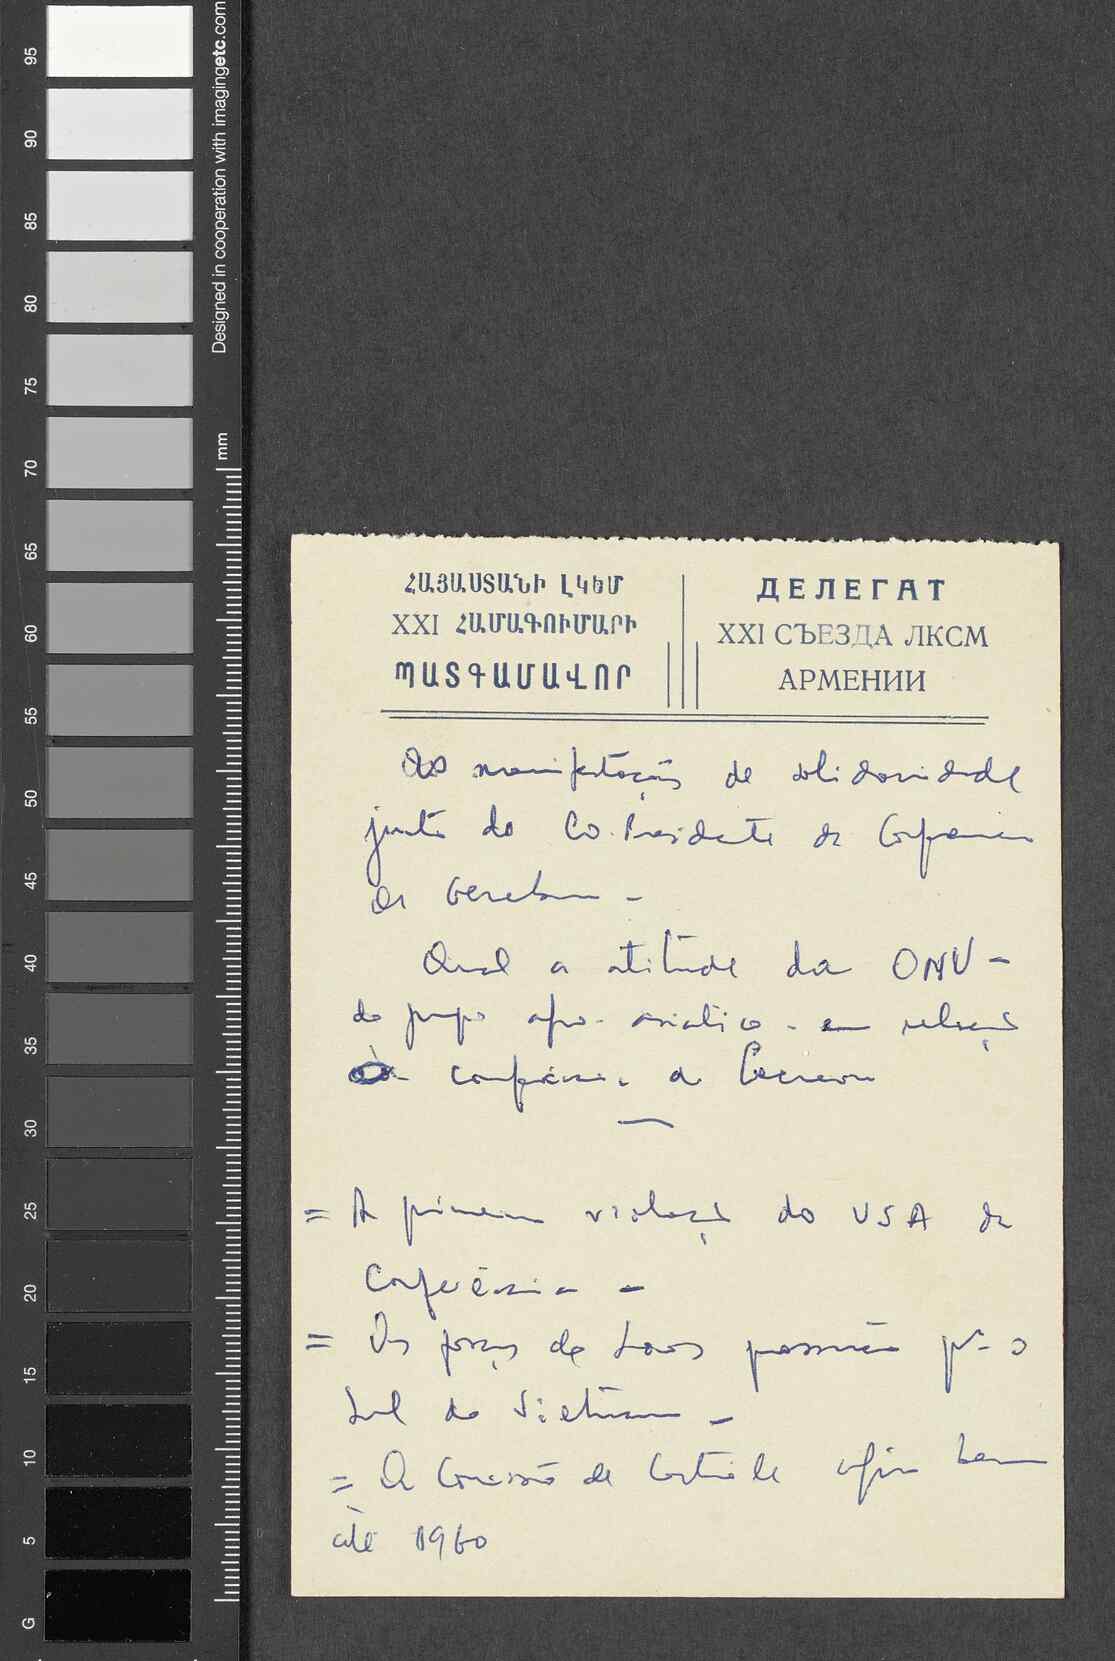 95
90
85
80
75
70
65
60
55
50
45
40
35
30
25
20
15
10
5
G
Designed in cooperation with imagingetc.com
mm
ՀԱՅԱՍՏԱՆԻ ԼԿԵՄ
XXI ՀԱՄԱԳՈՒՄԱՐԻ
ՊԱՏԳԱՄԱՎՈՐ
ДЕЛЕГАТ
XXI СЪЕЗДА ЛКСМ
АРМЕНИИ
As manifestações de solidariedade
junto do Co. Presidente da Conferencia
de Genebra -
Qual a atitude da ONU -
do grupo afro-asiatico - em relação
à conferência de Genebra
= A primeira violação do USA da
Conferência -
= As forças de Laos passarão pª o
Sul do Vietname -
= A Comissão de Controle bem
até 1960